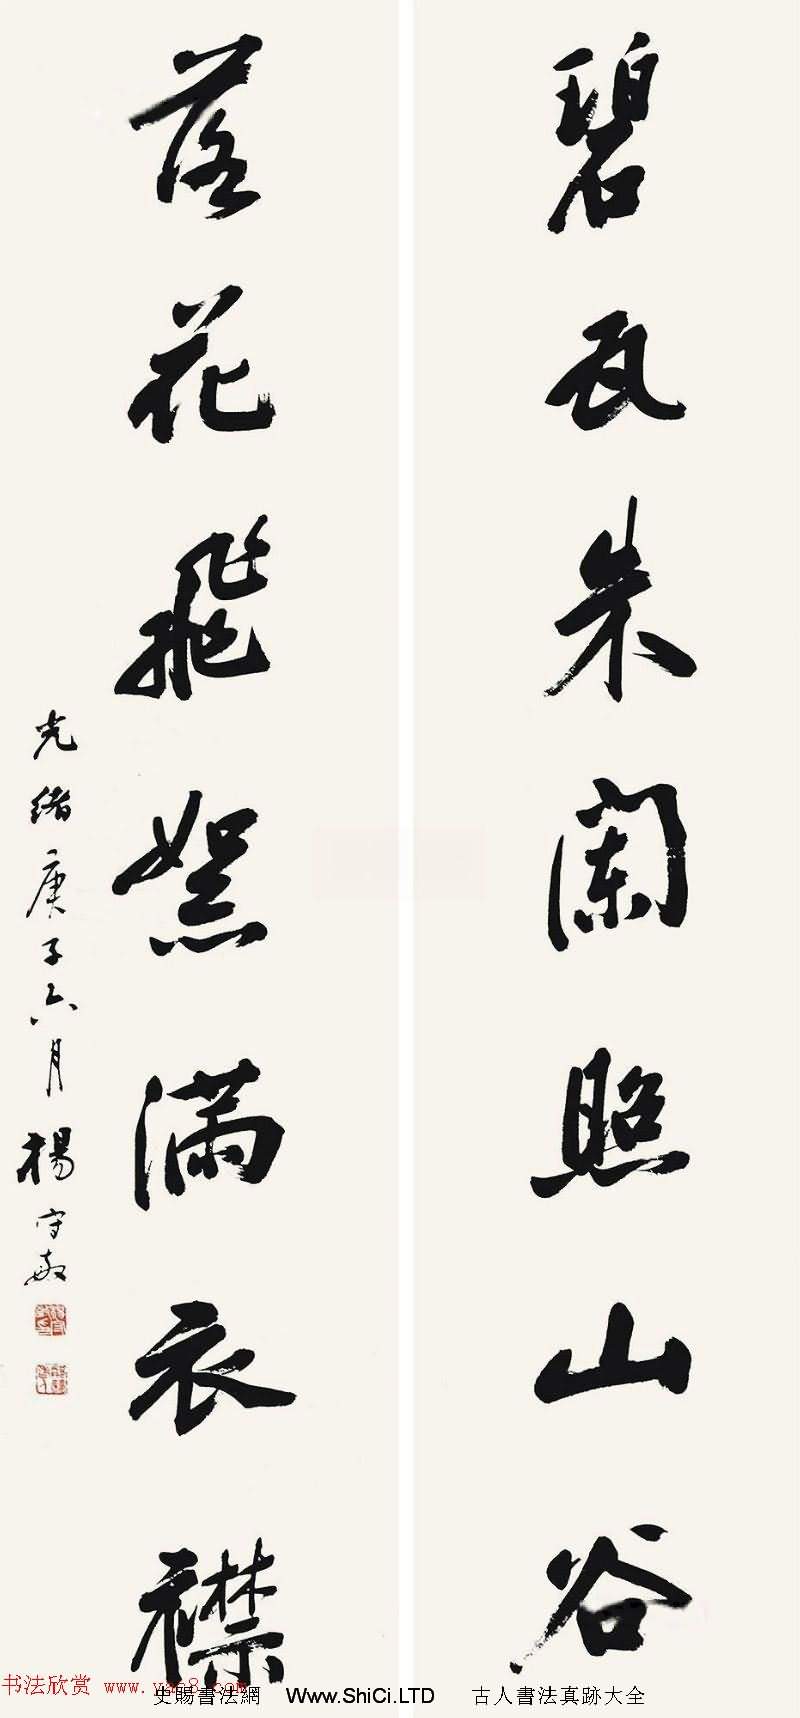 碧瓦朱闌照山谷
落花飛絮滿衣襟
光緒庚子六月楊守敬
书法欣赏 www.yac8.com
史賜書法網 Www.ShiCi.LTD 古人書法真跡大全